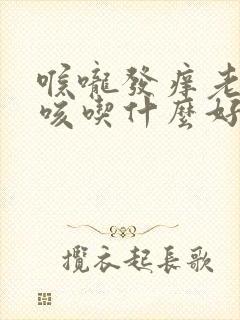 喉嚨發痒老
咳喫什麼好
攬衣起長歌